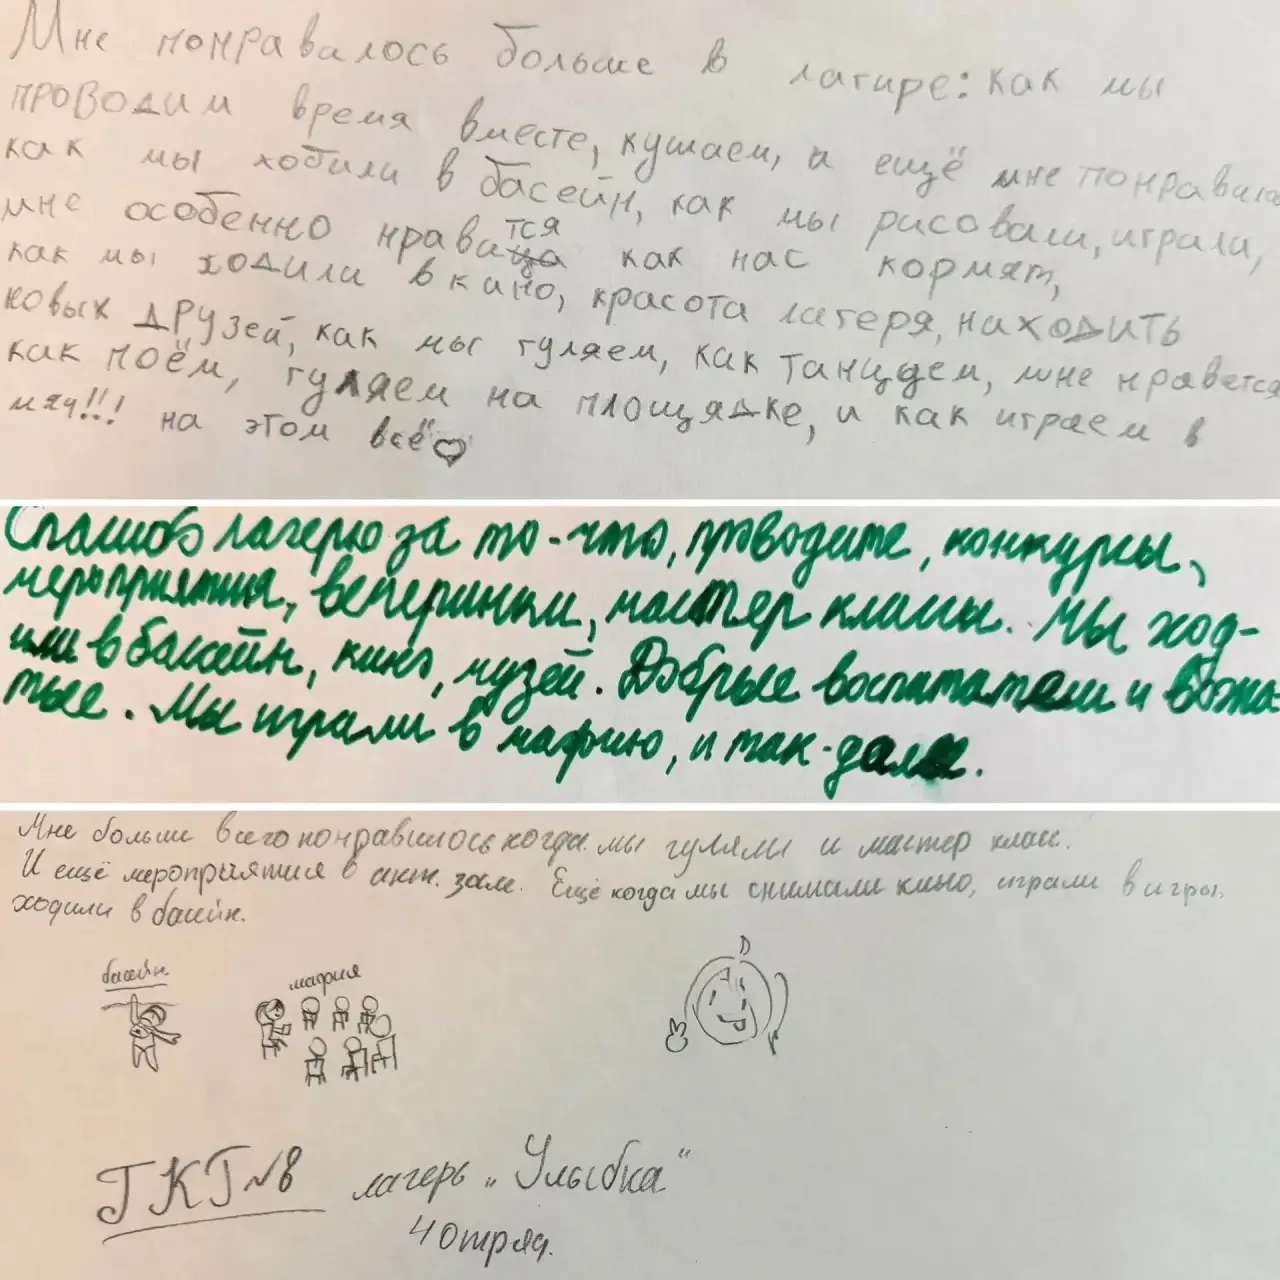 Мне понравалось больше в лагире: как мы
проводим время вместе, кушаем, а ещё мне понравило
как мы ходили в басейн, как мы рисовали, играли,
мне особенно нравится как нас кормят,
как мы ходили в кино, красота лагеря, находить
новых друзей, как мы гуляем, как танцуем, мне нравется
как поём, гуляем на площядке, и как играем в
мяч!!! на этом всё
Спасибо лагерю за то-что, проводите, конкурсы,
мероприятия, веперинки, мастер классы. Мы ход-
или в басейн, кино, музей. Добрые воспитатели и вожа-
тые. Мы играли в мафию, и так-далее.
Мне больше всего понравилось когда мы гуляли и мастер класс.
И ещё мероприятия в акт. зале. Ещё когда мы снимали кино, играли в игры,
ходили в басейн.
басейн
мафия
ГКГ №8 лагерь „Улыбка“
4 отряд.